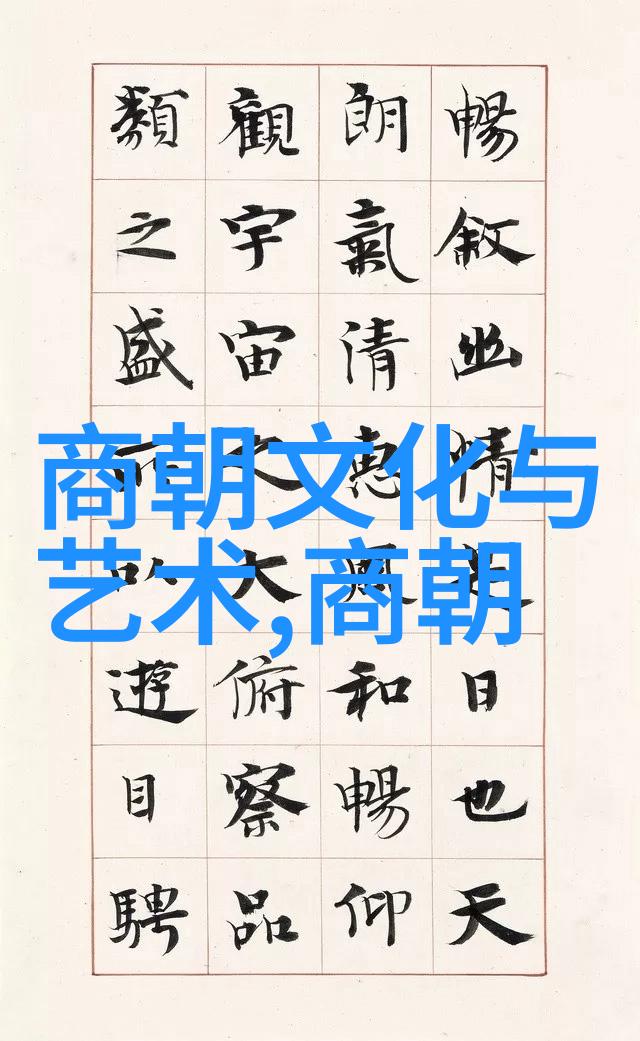 商朝文化与
艺术,商朝
暢敘幽情是日也天
朗氣清惠風和暢仰
觀宇宙之大俯察品
類之盛所以遊目騁